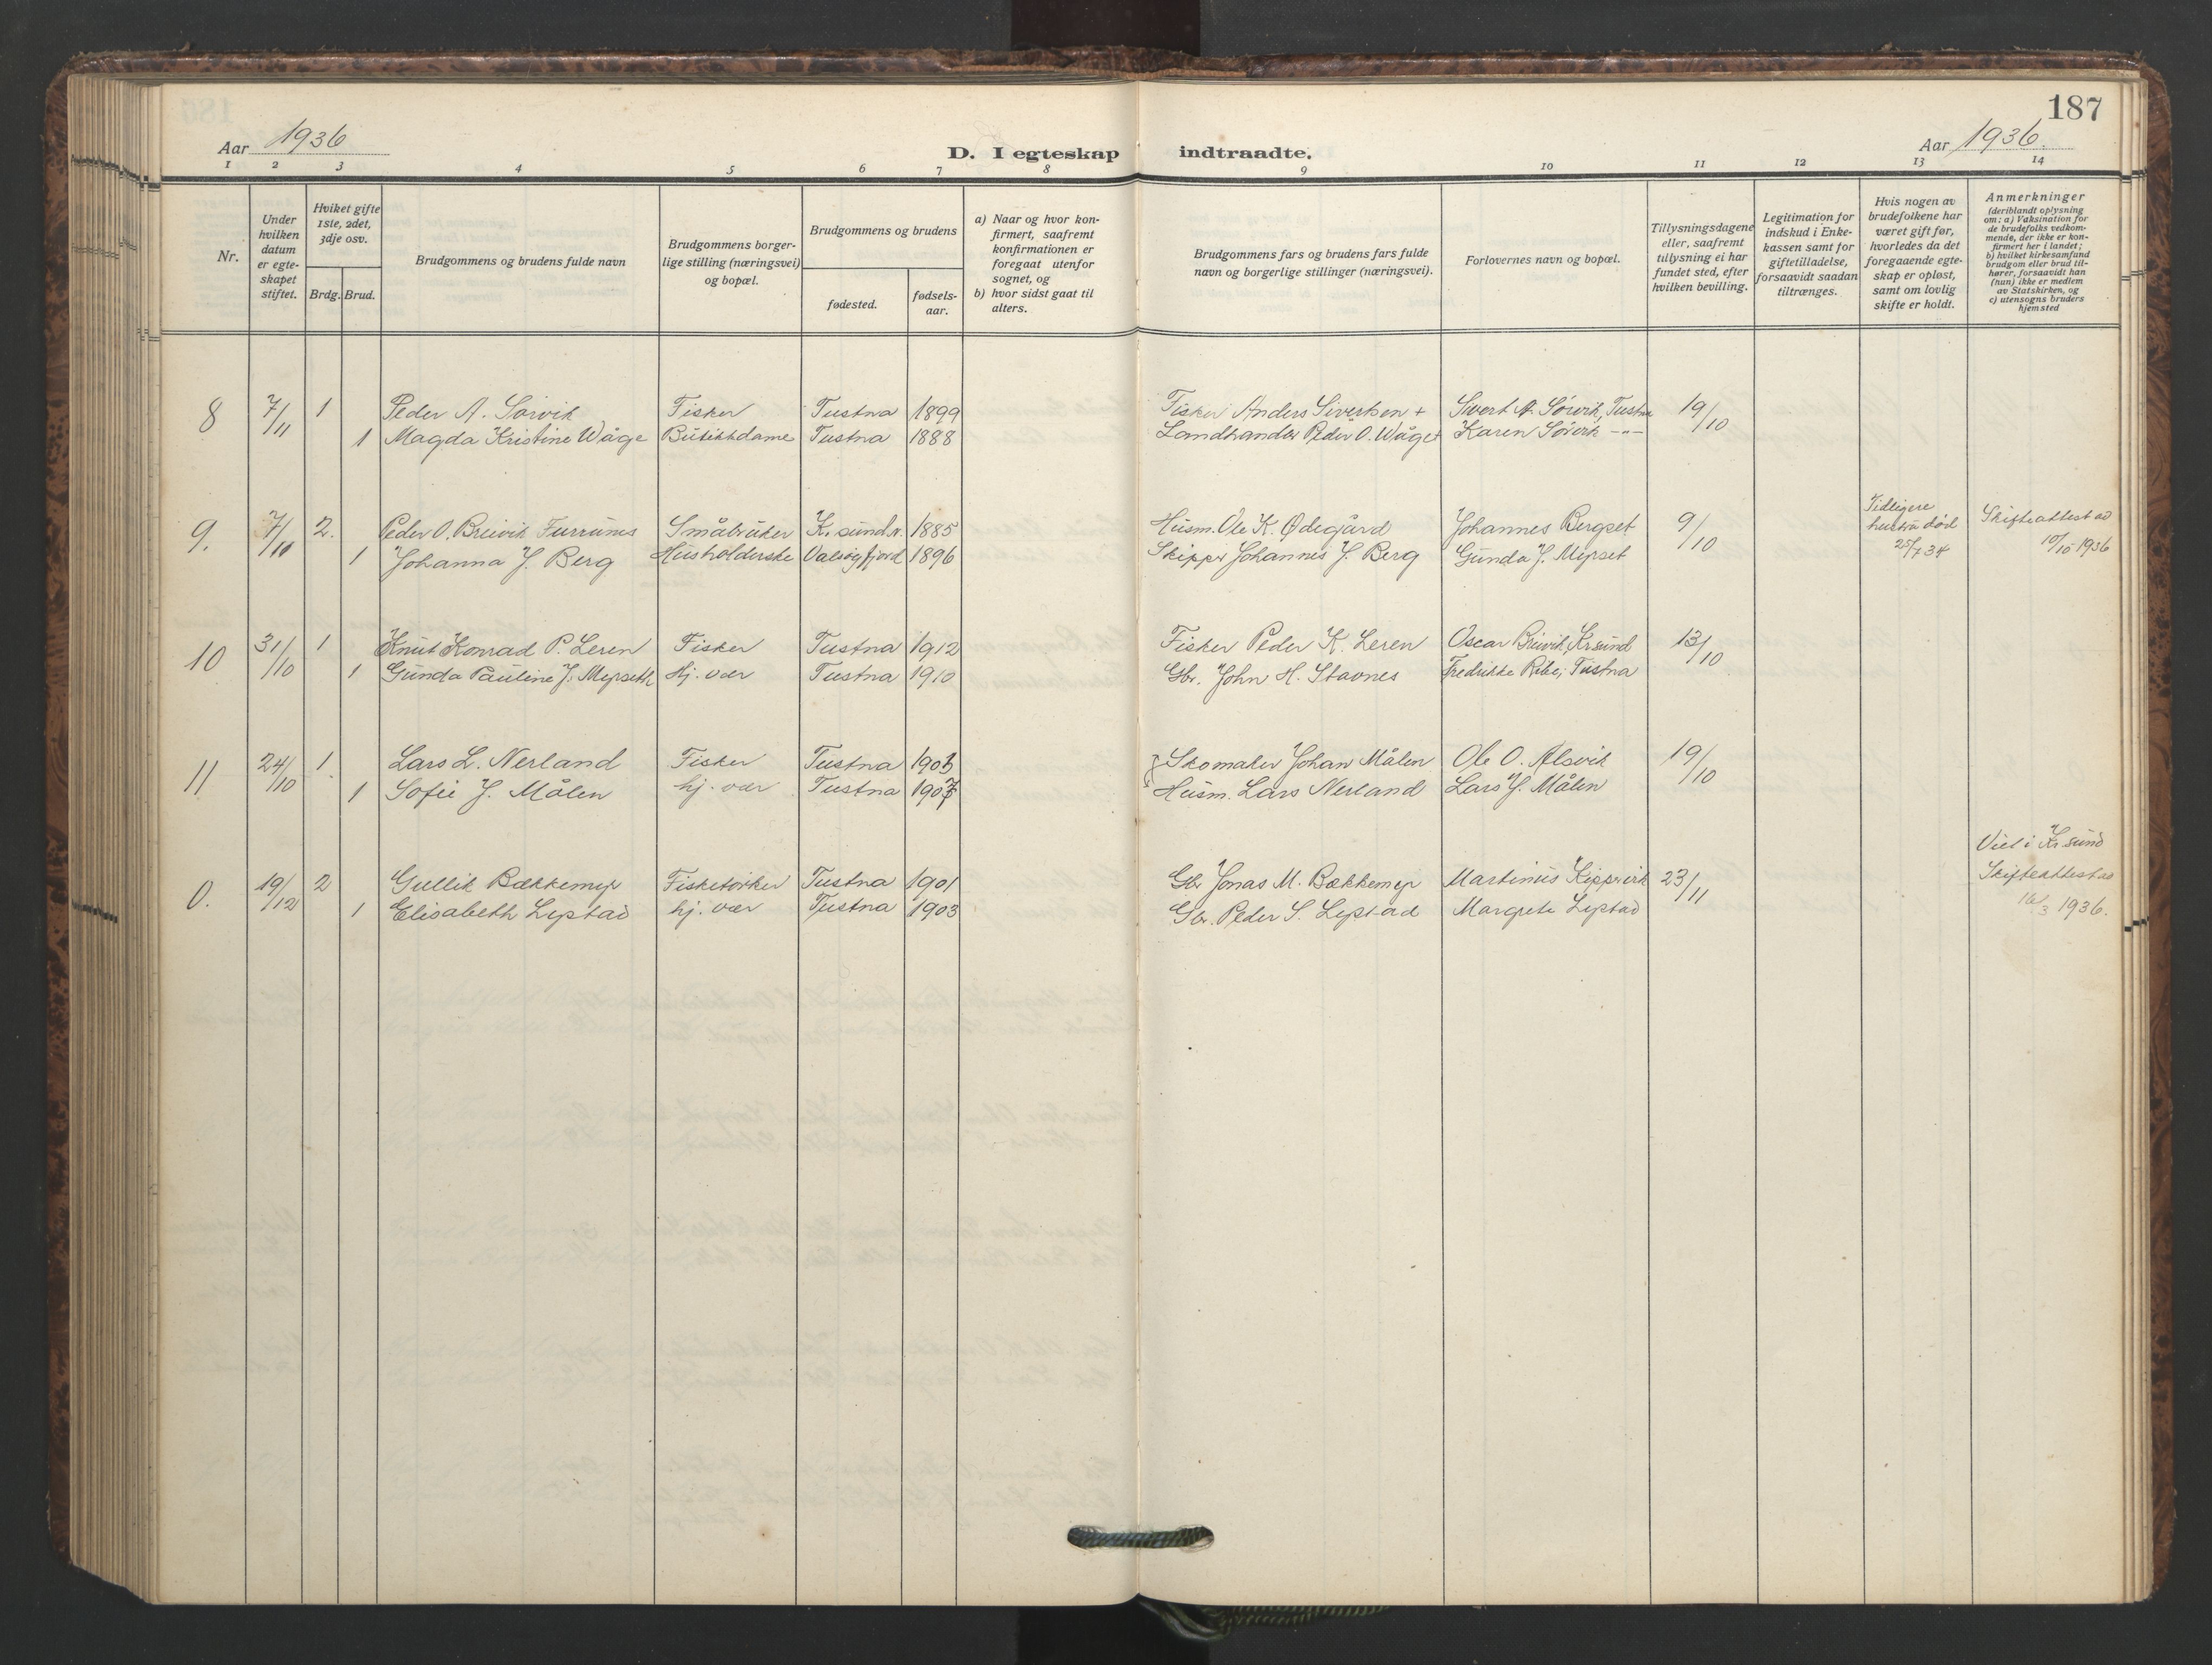 187
Aar 1936
D. I egteskap indtraadte.
Aar 1936.
1 2 3 4 5 6 7 8 9 10 11 12 13 14
Nr.
Under
hvilken
datum
er egte-
skapet
stiftet.
Hviket gifte
1ste, 2det,
3dje osv.
Brdg. Brud.
Brudgommens og brudens fulde navn
Brudgommens borger-
lige stilling (næringsvei)
og bopæl.
Brudgommens og brudens
fødested.
fødsels-
aar.
a) Naar og hvor kon-
firmert, saafremt
konfirmationen er
foregaat utenfor
sognet, og
b) hvor sidst gaat til
alters.
Brudgommens fars og brudens fars fulde
navn og borgerlige stillinger (næringsvei).
Forlovernes navn og bopæl.
Tillysningsdagene
eller, saafremt
tillysning ei har
fundet sted, efter
hvilken bevilling.
Legitimation for
indskud i Enke-
kassen samt for
giftetilladelse,
forsaavidt saadan
tiltrænges.
Hvis nogen av
brudefolkene har
været gift før,
hvorledes da det
foregaaende egte-
skap er opløst,
samt om lovlig
skifte er holdt.
Anmerkninger
(deriblandt oplysning
om: a) Vaksination for
de brudefolks vedkom-
mende, der ikke er kon-
firmert her i landet;
b) hvilket kirkesamfund
brudgom eller brud til-
hører, forsaavidt han
(hun) ikke er medlem
av Statskirken, og
c) utensogns bruders
hjemsted
8 7/11 1 Peder A. Sørvik Fisker Tustna 1899 Fisker Anders Sivertsen + Sivert A. Sørvik, Tustna 19/10
1 Magda Kristine Wåge Butikkdame Tustna 1888 Landhandler Peder O. Wåge+ Karen Sørvik -"-
9. 7/10 2. Peder O. Breivik Furrunes Småbruker K.sund. N. 1885 Husm. Ole K. Ødegård Johannes Bergset 9/10 Tidligere hustru død 25/7 34 Skifteattest ad 10/10-1936
1 Johanna J. Berg Husholderske Valsøyfjord 1896 Skipper Johannes J. Berg Gunda J. Myrset
10 31/10 1 Knut Konrad P. Leren Fisker Tustna 1912 Fisker Peder K. Leren Oscar Breivik, Kr.sund 13/10
1 Gunda Pauline J. Myrseth Hj. vær Tustna 1910 Gbr. John H. Stavnes Fredrikke Ribe, Tustna
11 24/10 1 Lars L. Nerland Fisker Tustna 1903 Skomaker Johan Målen Ole O. Alsvik 19/10
1 Sofie J. Målen hj. vær Tustna 1907 Husm. Lars Nerland Lars J. Målen
0. 19/12 2 Gullik Bækkemyr Fisketørker Tustna 1901 Gbr Jonas M. Bækkemyr Martinus Kippervik 23/11 Viet i Kr.sund Skifteattest ad 16/3 1936.
1 Elisabeth Leptad hj. vær Tustna 1903 Gbr. Peder S. Leptad Margrete Leptad